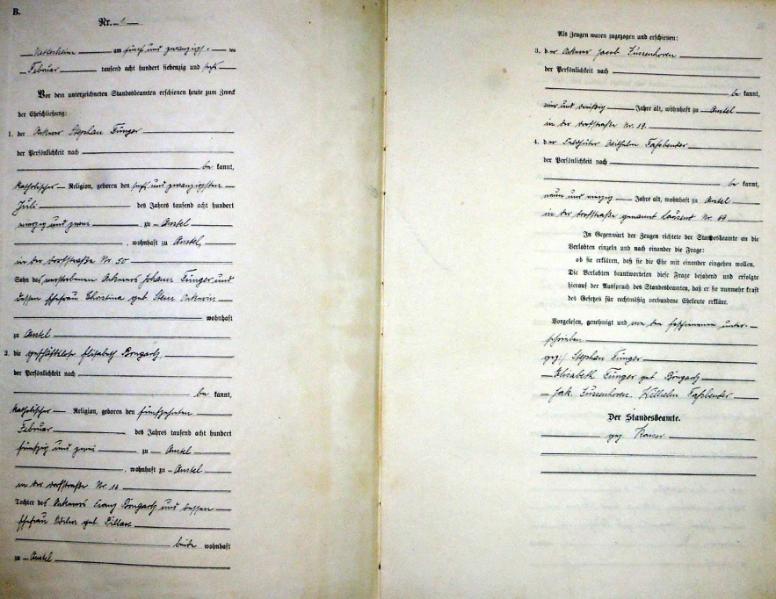 B.
Nr. 1
am fünf und zwanzigst
Februar tausend acht hundert siebenzig und sechs
Vor dem unterzeichneten Standesbeamten erschienen heute zum Zweck
der Eheschließung:
1. der Ackerer Stephan Fünger
der Persönlichkeit nach
be kannt,
katholischer Religion, geboren den sechs und zwanzigsten
Juli des Jahres tausend acht hundert
vierzig und zwei zu Anstel
, wohnhaft zu Anstel,
in der Dorfstraße Nr. 50
Sohn des verstorbenen Ackerers Johann Fünger und
dessen Ehefrau Christina geb.
wohnhaft
zu Anstel
2. die geschäftslose Elisabeth Bongartz,
der Persönlichkeit nach
be kannt,
katholischer Religion, geboren den fünfzehnten
Februar des Jahres tausend acht hundert
fünfzig und zwei zu Anstel
, wohnhaft zu Anstel
in der Dorfstraße Nr. 14
Tochter des Ackerers Franz Bongartz und dessen
Ehefrau geb.
beide wohnhaft
zu Anstel
Als Zeugen waren zugezogen und erschienen:
3. der Ackerer Jacob
der Persönlichkeit nach
be kannt,
vier und dreißig Jahre alt, wohnhaft zu Anstel
in der Dorfstraße Nr. 19
4. der Feldhüter Wilhelm Faßbender
der Persönlichkeit nach
be kannt,
neun und vierzig Jahre alt, wohnhaft zu Anstel
in der Dorfstraße genannt Nr.
In Gegenwart der Zeugen richtete der Standesbeamte an die
Verlobten einzeln und nach einander die Frage:
ob sie erklären, daß sie die Ehe mit einander eingehen wollen.
Die Verlobten beantworteten diese Frage bejahend und erfolgte
hierauf der Ausspruch des Standesbeamten, daß er sie nunmehr kraft
des Gesetzes für rechtmäßig verbundene Eheleute erkläre.
Vorgelesen, genehmigt und von den Erschienenen unter-
schrieben
gez: Stephan Fünger
Elisabeth Fünger geb Bongartz
Jak. Wilhelm Faßbender
Der Standesbeamte.
gez